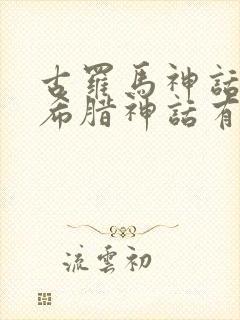 古羅馬神話
希腊神話有
流雲初